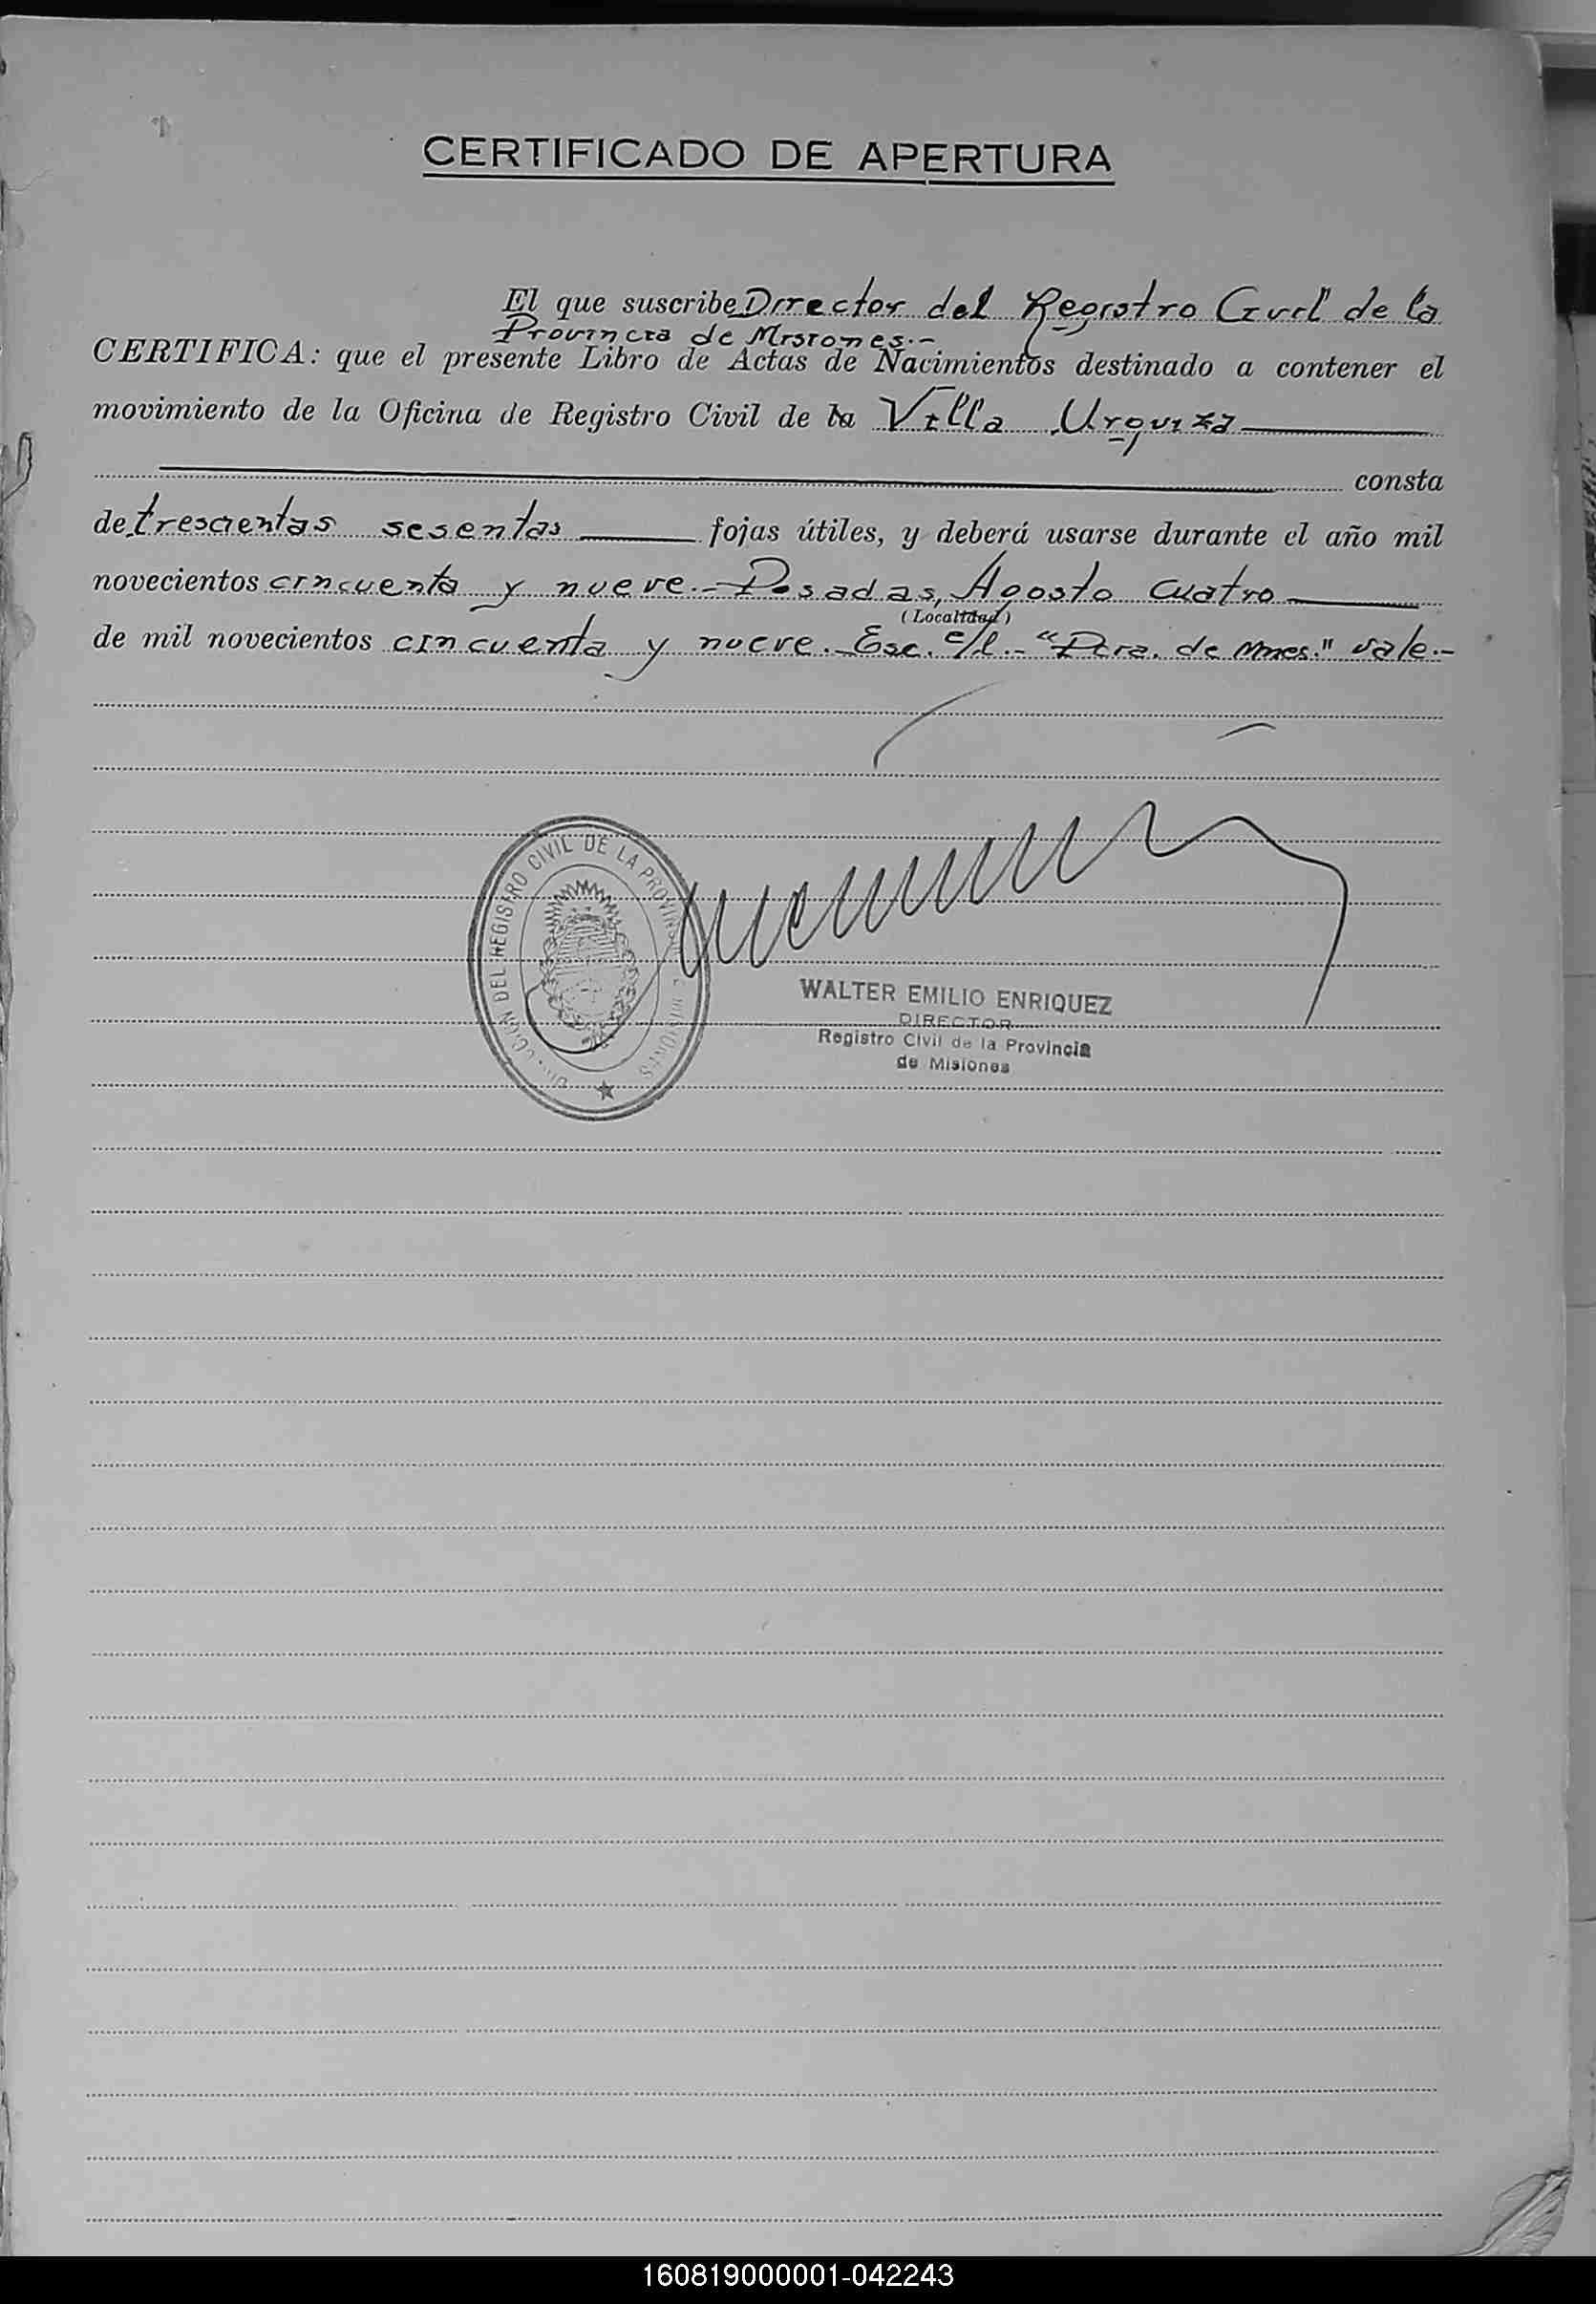 CERTIFICADO DE APERTURA
El que suscribe Director del Registro Civil de la
Provincia de Misiones.-
CERTIFICA: que el presente Libro de Actas de Nacimientos destinado a contener el
movimiento de la Oficina de Registro Civil de la Villa Urquiza
consta
de trescientas sesentas fojas útiles, y deberá usarse durante el año mil
novecientos cincuenta y nueve.- Posadas, Agosto cuatro
(Localidad)
de mil novecientos cincuenta y nueve. Esc. e/l.- "Pcia. de Mnes." vale.-
DEL REGISTRO CIVIL DE LA
WALTER EMILIO ENRIQUEZ
DIRECTOR
Registro Civil de la Provincia
de Misiones
160819000001-042243